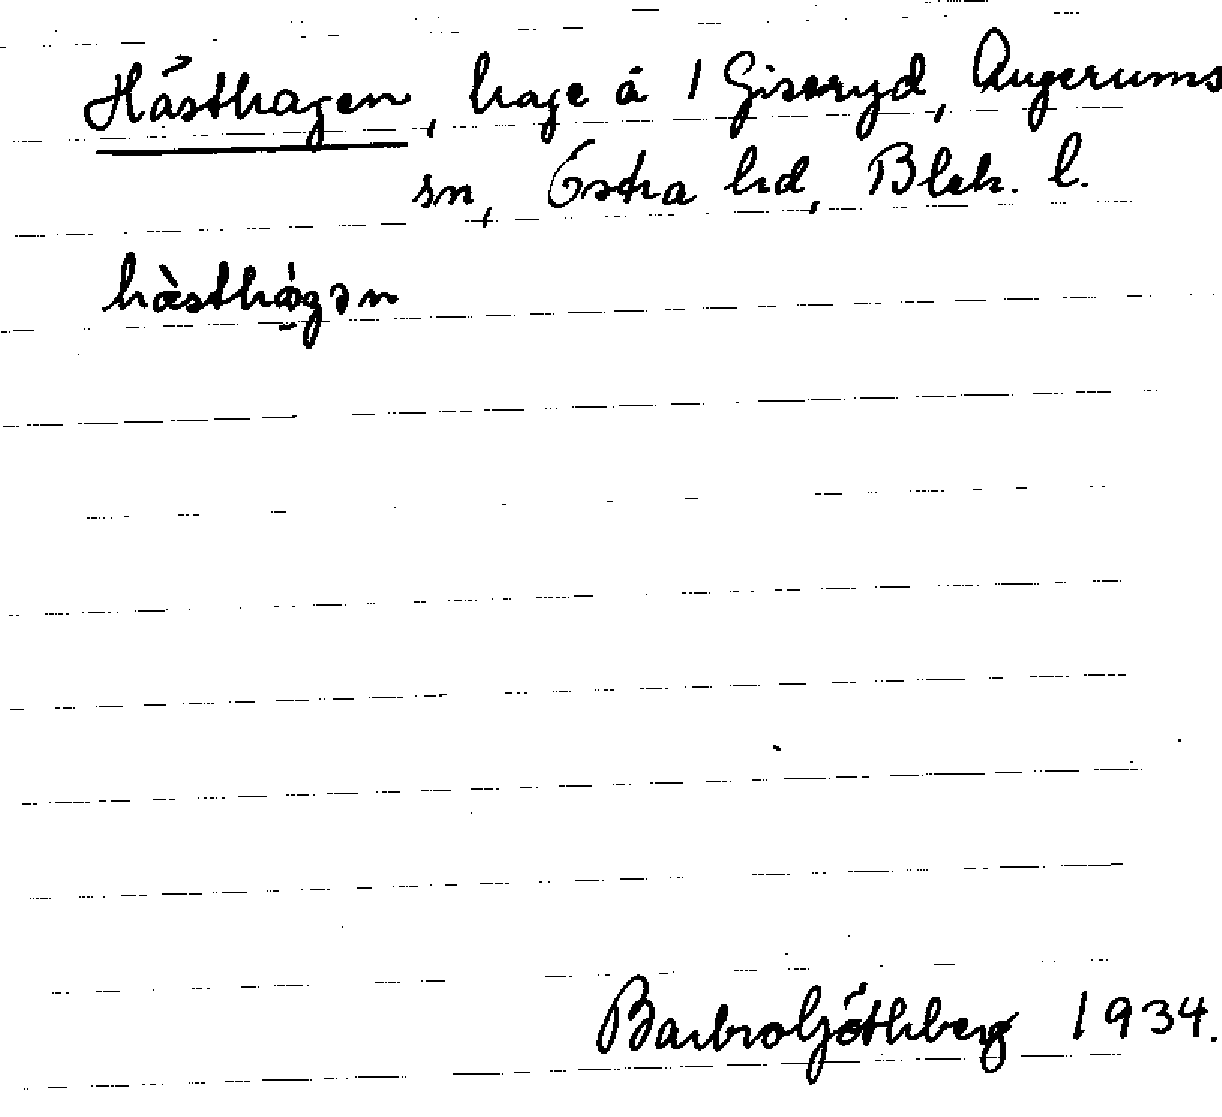 Hästhagen, hage å 1 Gisseryd, Augerums
sn, Östra hd, Blek. l.
hàsthágən
Barbro Göthberg 1934.